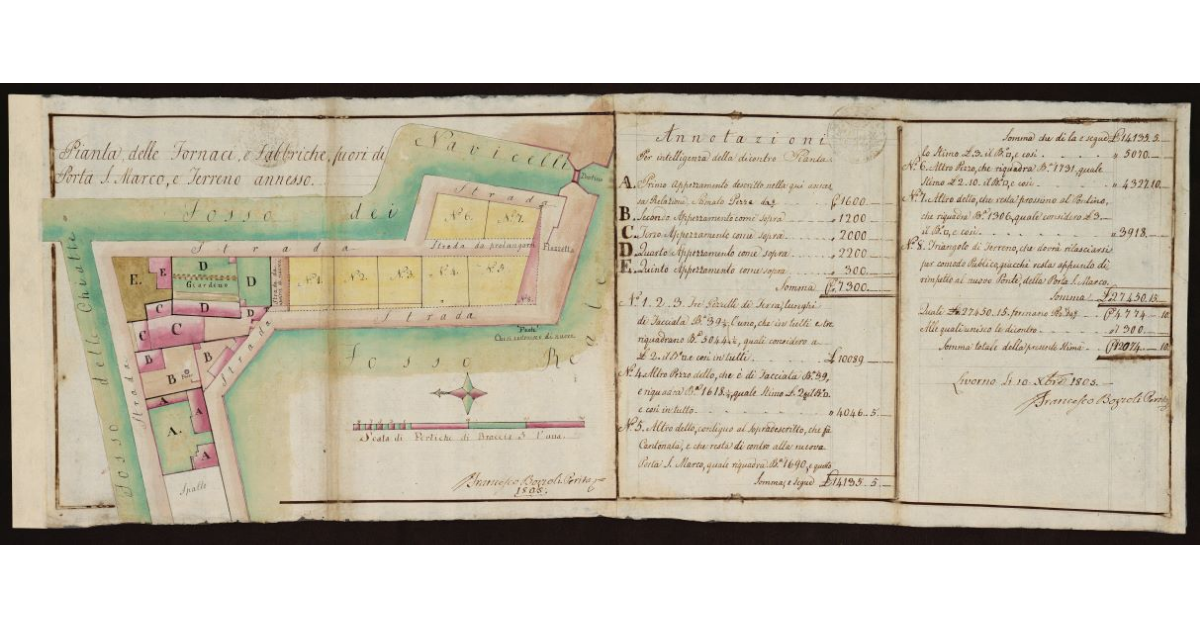 Pianta delle Fornaci, e Fabbriche, fuori di
Porta S. Marco, e Terreno annesso.
Fosso dei Navicelli
Fosso delle Chiatte
Fosso Reale
Strada
N.° 6. N.° 7.
Strada da prolungarsi
Piazzetta
Strada
E. E D
Giardino
D
N.° 1 N.° 2. N.° 3. N.° 4. N.° 5.
N.° 8.
C D D
C C
Strada
Strada
B B
B
Pozzo
Strada
A A
A.
A
Spalti
Ponte
Scala di Pertiche di Braccia 5 Tana.
Francesco Bozioli Perito
1805.
Annotazioni
Per intelligenza della dicontro Pianta.
A. Primo Appezzamento descritto nella qui annes
sa Relazione 1600
B. Secondo Appezzamento come sopra 1200
C. Terzo Appezzamento come sopra 2000
D. Quarto Appezzamento come sopra 2200
E. Quinto Appezzamento come sopra 300
Somma 7300
N.i 1. 2. 3. Tre Pezzetti di Terra, lunghi
di facciata B.a 39½ l'uno, che in tutti e tre
riquadrano B.a 5044½, quali considero a
£ 2. il B.o a e così in tutti £ 10089
N.° 4. Altro Pezzo dello, che è di facciata B.a 39,
e riquadra B.a 1618½, quale stimo £ 2½ il B.o a.
e così in tutto 4046. 5.
N.° 5. Altro dello, contiguo al sopradescritto, che fà
Cantonata, e che resta di contro alla nuova
Porta S. Marco, quale riquadra B.a 1690, e questo
Somma, e segue £ 14135. 5
Somma da di la e segue £ 14135. 5.
lo stimo £ 3. il B.o a, e così 5070
N.° 6. Altro Pezzo, che riquadra B.a 1731, quale
stimo £ 2. 10. il B.o a, e così 4327. 10.
N.° 7. Altro dello, che resta prossimo al Portino,
che riquadra B.a 1306, quale considero £ 3.
il B.o a, e così 3918.
N.° 8. Triangolo di Terreno, che dovrà rilasciarsi
per comodo Publico, giacchè resta appunto di
rimpetto al nuovo Ponte, della Porta S. Marco.
Somma £ 27450. 15.
Quali £ 27450. 15. formano 4774 10
Alli quali unisco le dicontro 7300.
Somma totale della presente Stima 12074 10
Livorno li 10. Xbre 1805.
Francesco Bozioli Perito